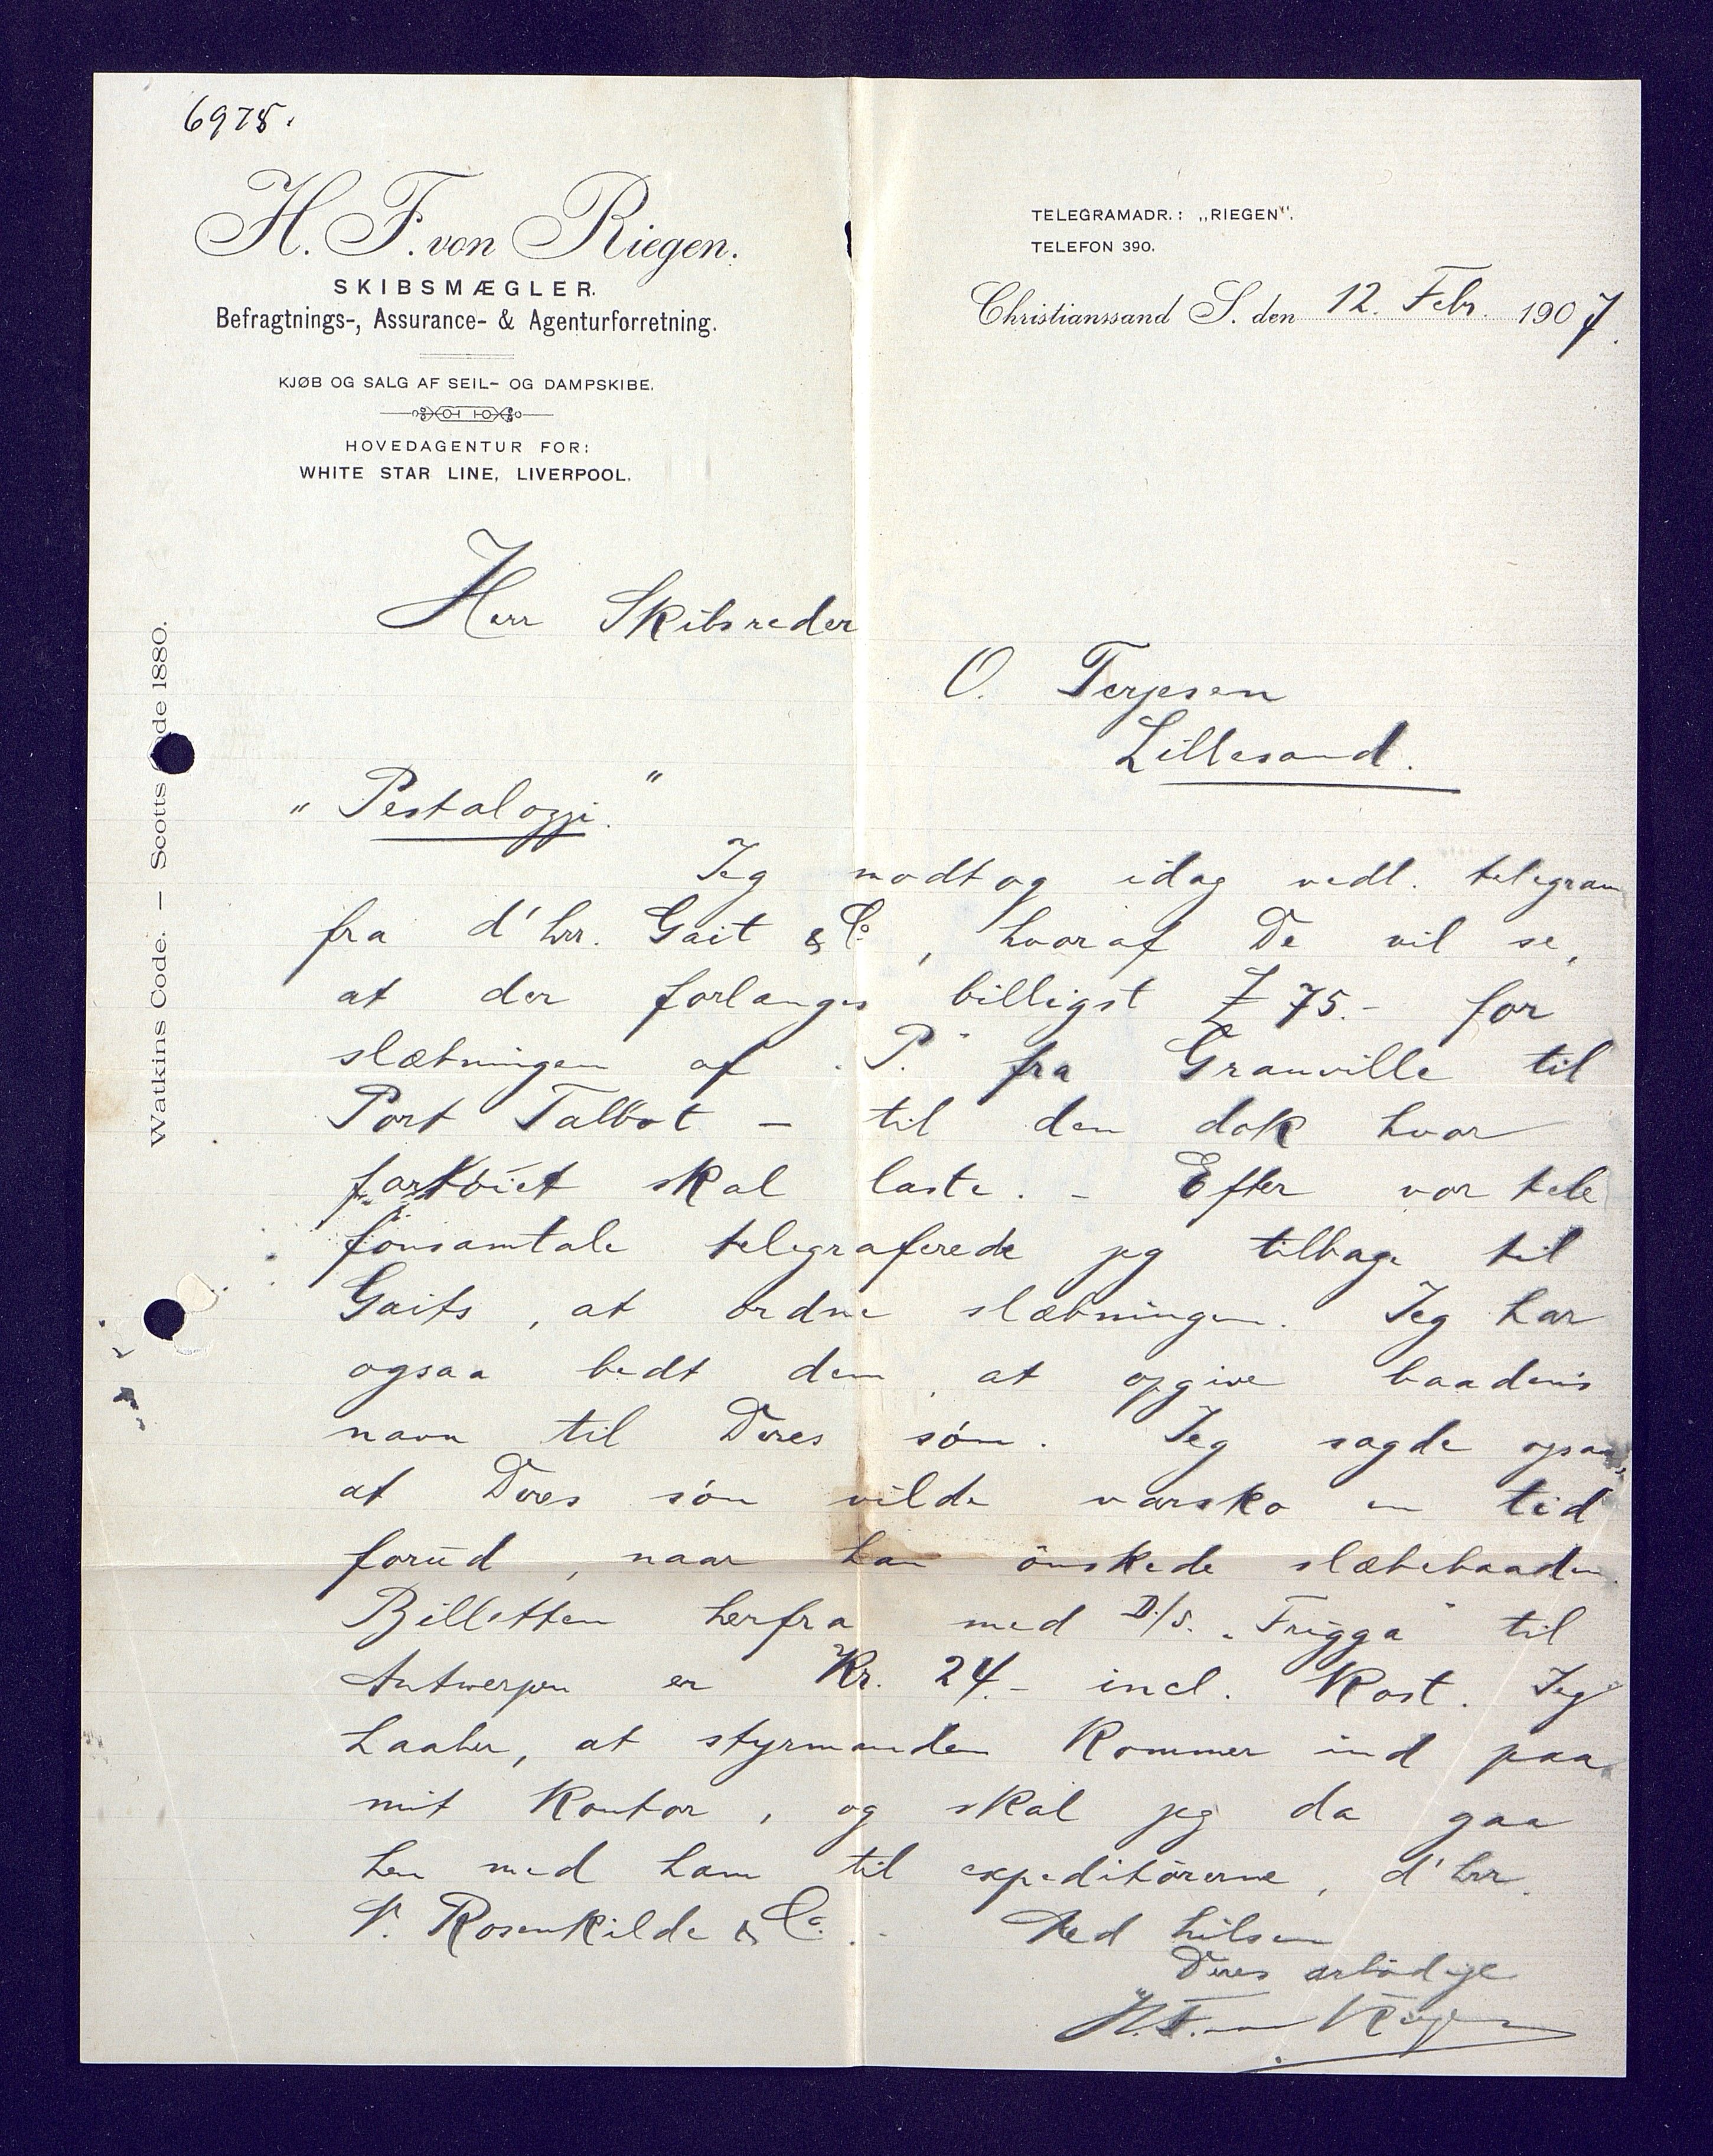 6978.
H. F. von Riegen.
SKIBSMÆGLER.
Befragtnings-, Assurance- & Agenturforretning.
KJØB OG SALG AF SEIL- OG DAMPSKIBE.
HOVEDAGENTUR FOR:
WHITE STAR LINE, LIVERPOOL.
TELEGRAMADR.: „RIEGEN".
TELEFON 390.
Christianssand S. den 12. Febr. 1907.
Watkins Code. — Scotts Code 1880.
Herr Skibsreder
O. Terjesen
Lillesand.
"Pestalozzi."
Jeg modtog idag vedl. telegram
fra d'hrr. Gait & Co, hvoraf De vil se,
at der forlanges billigst £ 75.- for
slæbningen af "P." fra Granville til
Port Talbot – til den dok hvor
fartöiet skal laste. – Efter vor tele
fonsamtale telegraferede jeg tilbage til
Gaits, at ordne slæbningen. Jeg har
ogsaa bedt dem, at opgive baadens
navn til Deres sön. Jeg sagde ogsaa,
at Deres sön vilde varsko en tid
forud, naar han önskede slæbebaaden.
Billetten herfra med D/S. "Frigga" til
Antwerpen er Kr. 24.- incl. Kost. Jeg
haaber, at styrmanden kommer ind paa
mit kontor, og skal jeg da gaa
hen med ham til expeditörerne, d'hrr.
V. Rosenkilde & Co.
Med hilsen
Deres ærbödige
H. F. von Riegen